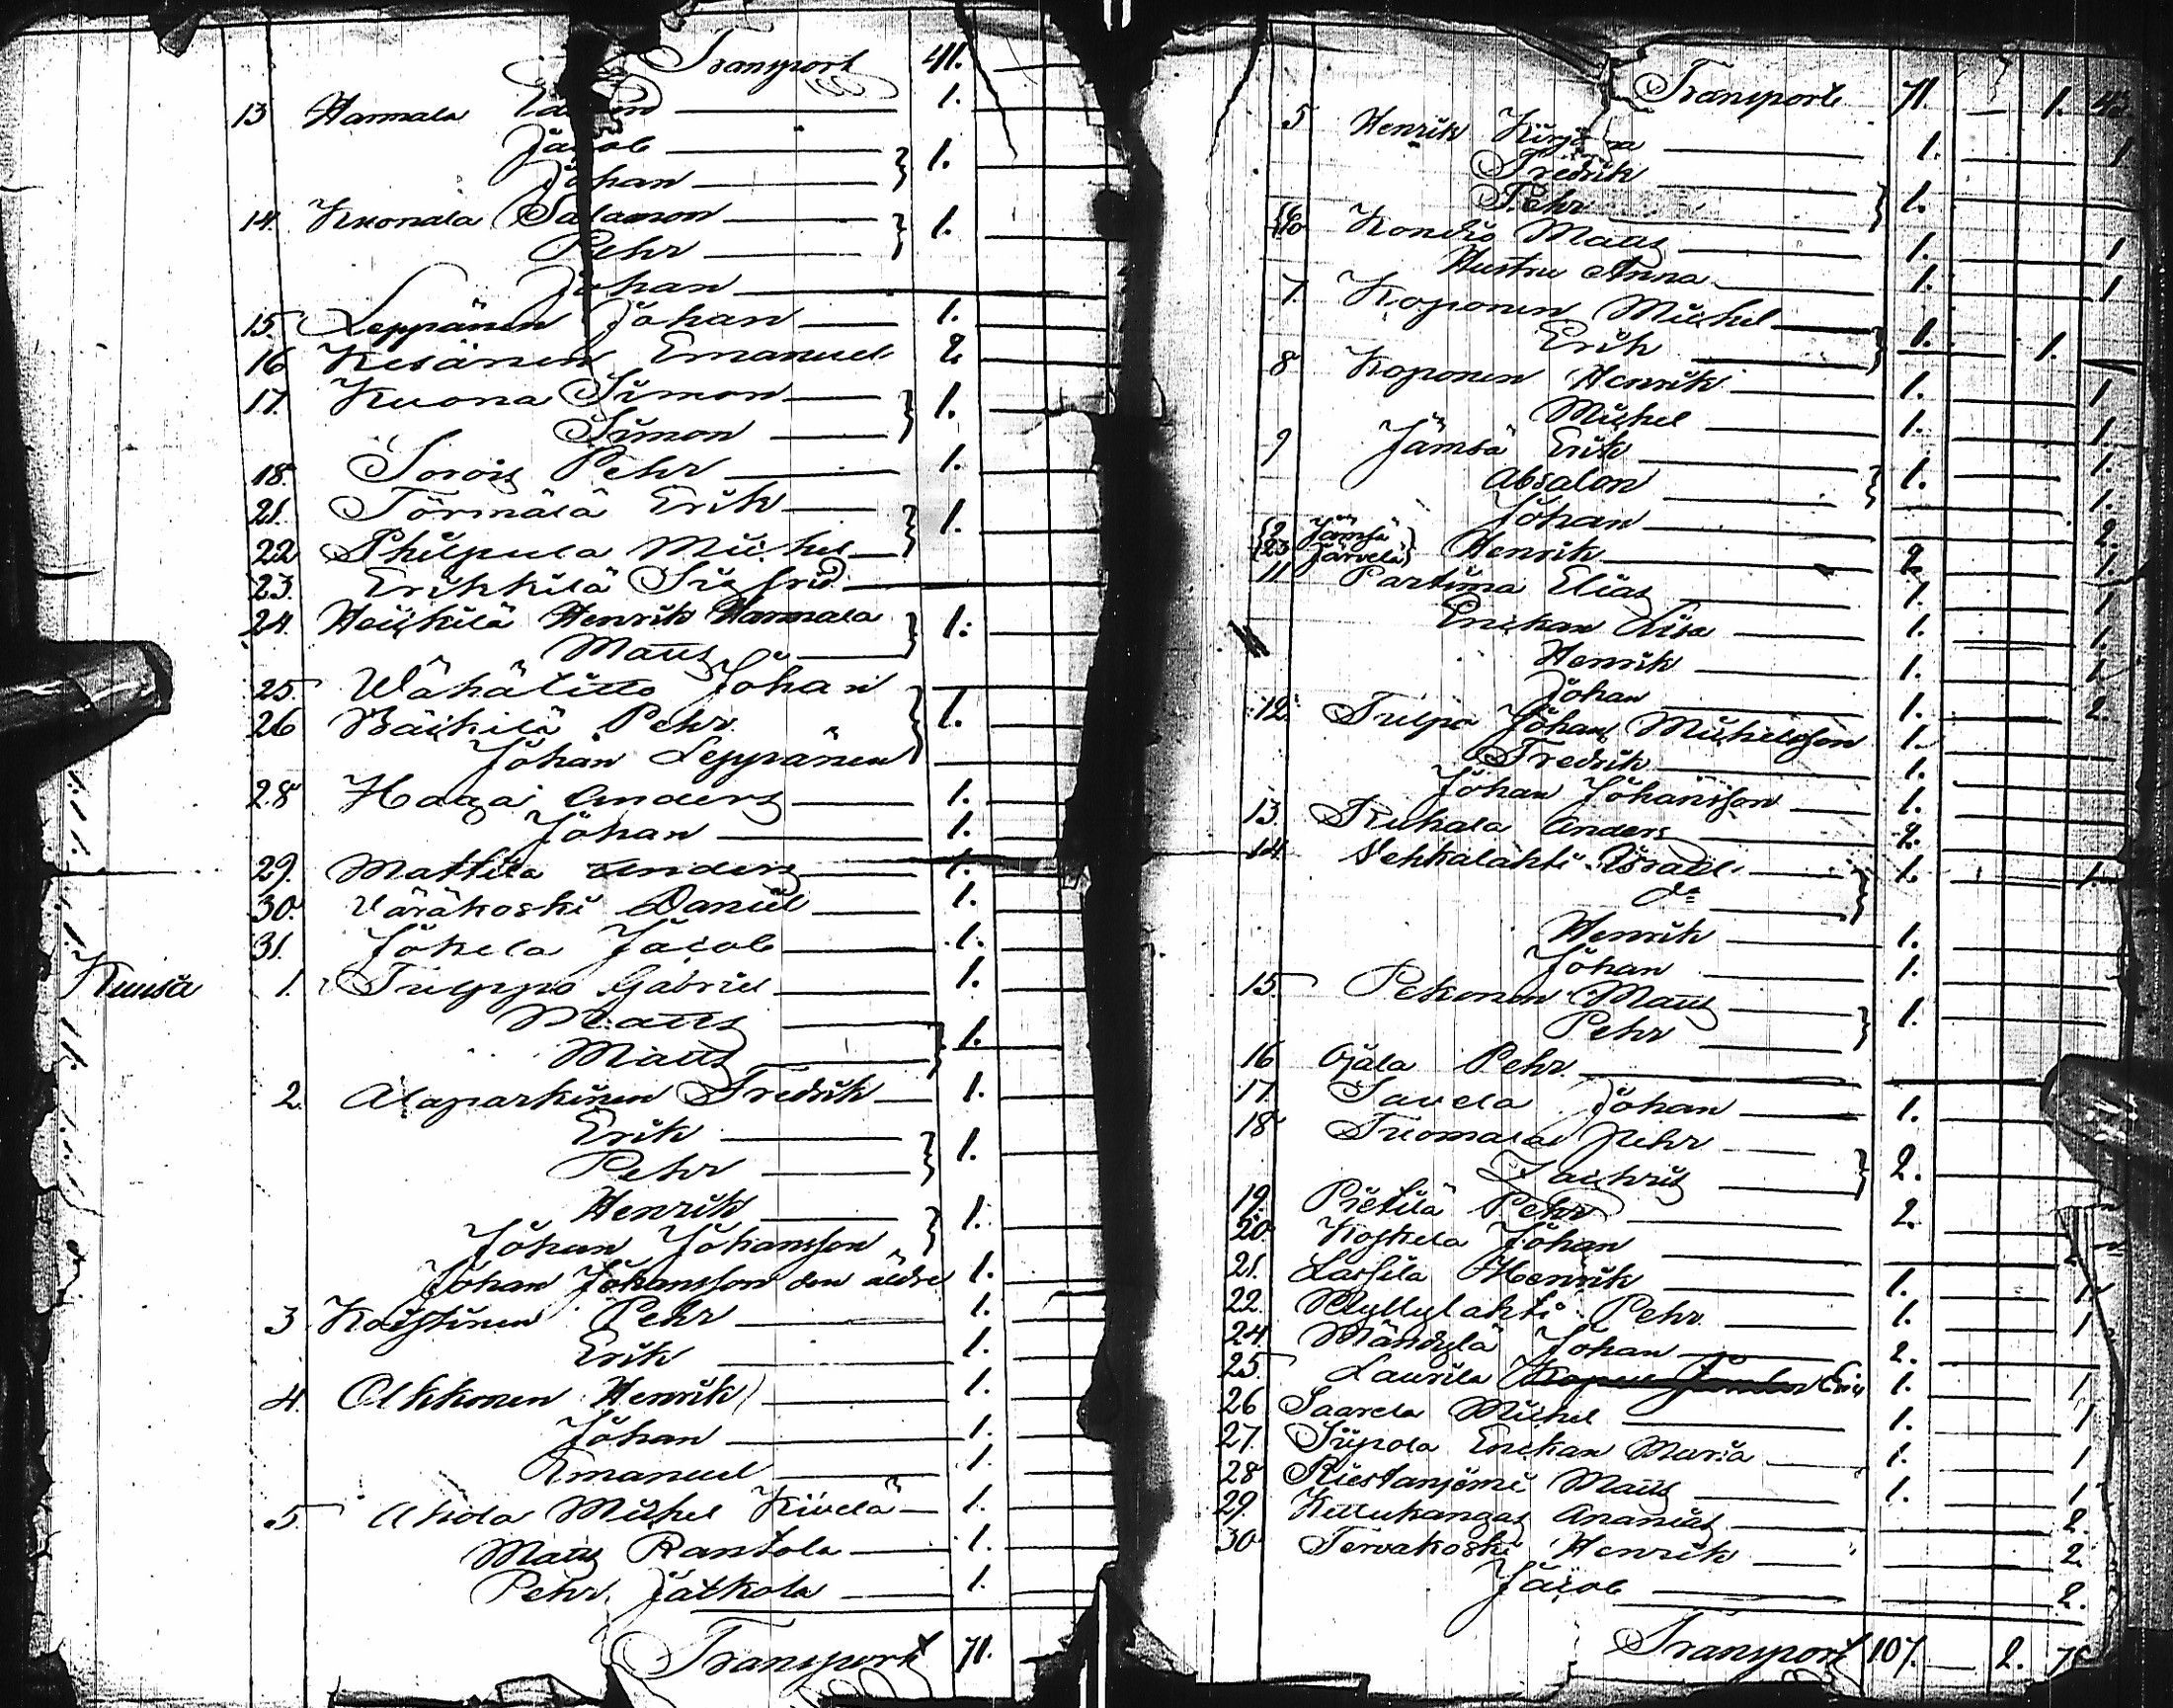 Transport 41.
13 Harmala 1.
Jacob
Johan 1.
14. Kuonala Salamon
Pehr 1.
Johan
15 Leppänen Johan 1.
16 Kesänen Emanuel 2
17. Kuona Simon
Simon 1.
18. Pehr 1.
21. Törmälä Erik
22 Philpula Michel 1.
23. Erikkilä Sigfrid
24. Heickilä Henrik Harmala
Matts 1.
25 Wähälitto Johan
26 Bäckilä Pehr 1.
Johan Leppänen
28 Haga Anders 1.
Johan 1.
29. Mattila Anders 1.
30. Väräkoski Daniel 1.
31. Jokela Jacob 1.
Kuusa 1. Tulppo Gabriel 1.
Matts
Matts 1.
2. Alaparkinen Fredrik 1.
Erik
Pehr 1.
Henrik
Johan Johansson 1.
Johan Johansson den äldre 1.
3 Koistinen Pehr 1.
Erik 1.
4. Alkkonen Henrik 1.
Johan 1.
Emanuel 1.
5 Ahola Michel Kivelä 1.
Matts Rantola 1.
Pehr Jatkola 1.
Transport 71.
Transport 71. 1.
5 Henrik 1. 1
Fredrik
Pehr 1.
6 Kondio Matts 1. 1
Hustru Anna 1. 1
7. Koponen Michel
Erik 1. 1.
8 Koponen Henrik 1. 1
Michel 1. 1.
9 Jämsä Erik 1.
Absalon 1. 1.
Johan 2.
Jämsä
23 Järvelä Henrik 2 1.
11 Partima Elias 1. 1
Enckan Lisa 1. 1.
Henrik 1. 1
Johan 1. 2.
12. Tulpo Johan Michelsson 1.
Fredrik 1.
Johan Johansson 1.
13. Ruhala Anders 2.
14 Vehkalahti Israel 1. 1.
do
Henrik 1.
Johan 1.
15. Pekonen Matts
Pehr 1.
16 Ojala Pehr
17. Savela Johan 1.
18 Tuomala Pehr
Zachris 2.
19. Pietilä Pehr 2.
20. Koskela Johan
21. Lassila Henrik 1. 1.
22. Myllylahti Pehr 1. 1
24. Mändylä Johan 2.
25 Laurila 1. 1
26 Saarela Michel 1. 1
27. Siipola Enckan Maria 1. 1
28 Riestaniemi Matts 1. 1
29. Kellukangas Ananias 2.
30 Tervakoski Henrik 2
Jacob 2.
Transport 107. 2.